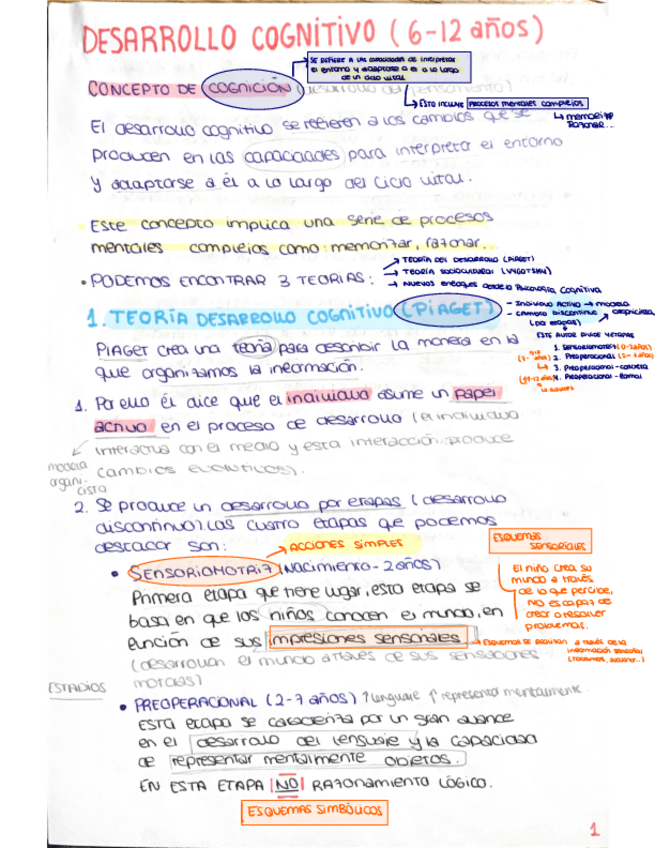 DESARROLLO COGNITIVO (6-12 años)
SE REFIERE A LAS CAPACIDADES DE INTERPRETAR
EL ENTORNO Y ADAPTARSE A ÉL A LO LARGO
DE UN CICLO VITAL
CONCEPTO DE COGNICIÓN (desarrollo del pensamiento)
↳ ESTO INCLUYE PROCESOS MENTALES COMPLEJOS
↳ MEMORIZAR
RAZONAR...
El desarrollo cognitivo se refieren a los cambios que se
producen en las capacidades para interpretar el entorno
y adaptarse a él a lo largo del ciclo vital.
Este concepto implica una serie de procesos
mentales complejos como: memorizar, razonar...
• PODEMOS ENCONTRAR 3 TEORÍAS:
→ TEORÍA DEL DESARROLLO (PIAGET)
→ TEORÍA SOCIOCULTURAL (VYGOTSKY)
→ NUEVOS ENFOQUES desde la Psicología Cognitiva
1. TEORÍA DESARROLLO COGNITIVO (PIAGET)
- Individuo Activo → modelo organicista
- CAMBIO DISCONTINUO
(por etapas)
ESTE AUTOR DIVIDE 4 ETAPAS
1. Sensoriomotriz (0-2años)
2. Preoperacional (2-7años)
3. Preoperacional-concreta
4. Preoperacional-formal
PIAGET crea una teoría para describir la manera en la
que organizamos la información.
1. Por ello él dice que el individuo asume un papel
activo en el proceso de desarrollo (el individuo
interactua con el medio y esta interacción produce
cambios evolutivos).
modelo
organi-
cista
2. Se produce un desarrollo por etapas (desarrollo
discontinuo) las cuatro etapas que podemos
destacar son:
→ ACCIONES SIMPLES
ESQUEMAS
SENSORIALES
• SENSORIOMOTRIZ (Nacimiento-2años)
Primera etapa que tiene lugar, esta etapa se
basa en que los niños conocen el mundo, en
función de sus impresiones sensoriales
(desarrollan el mundo a través de sus sensaciones
motoras)
El niño crea su
mundo a través
de lo que percibe,
NO es capaz de
crear o resolver
problemas.
→ Esquemas se realizan a través de la
información sensorial
ESTADIOS
• PREOPERACIONAL (2-7 años) ↑lenguaje ↑representar mentalmente
ESTA etapa se caracteriza por un gran avance
en el desarrollo del lenguaje y la capacidad
de representar mentalmente objetos.
EN ESTA ETAPA NO RAZONAMIENTO LÓGICO.
ESQUEMAS SIMBÓLICOS
1